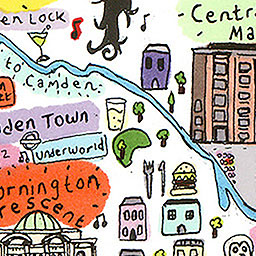 en Lock
Centra
Ma
to
Camden
den Town
underworld
ornington
rescent